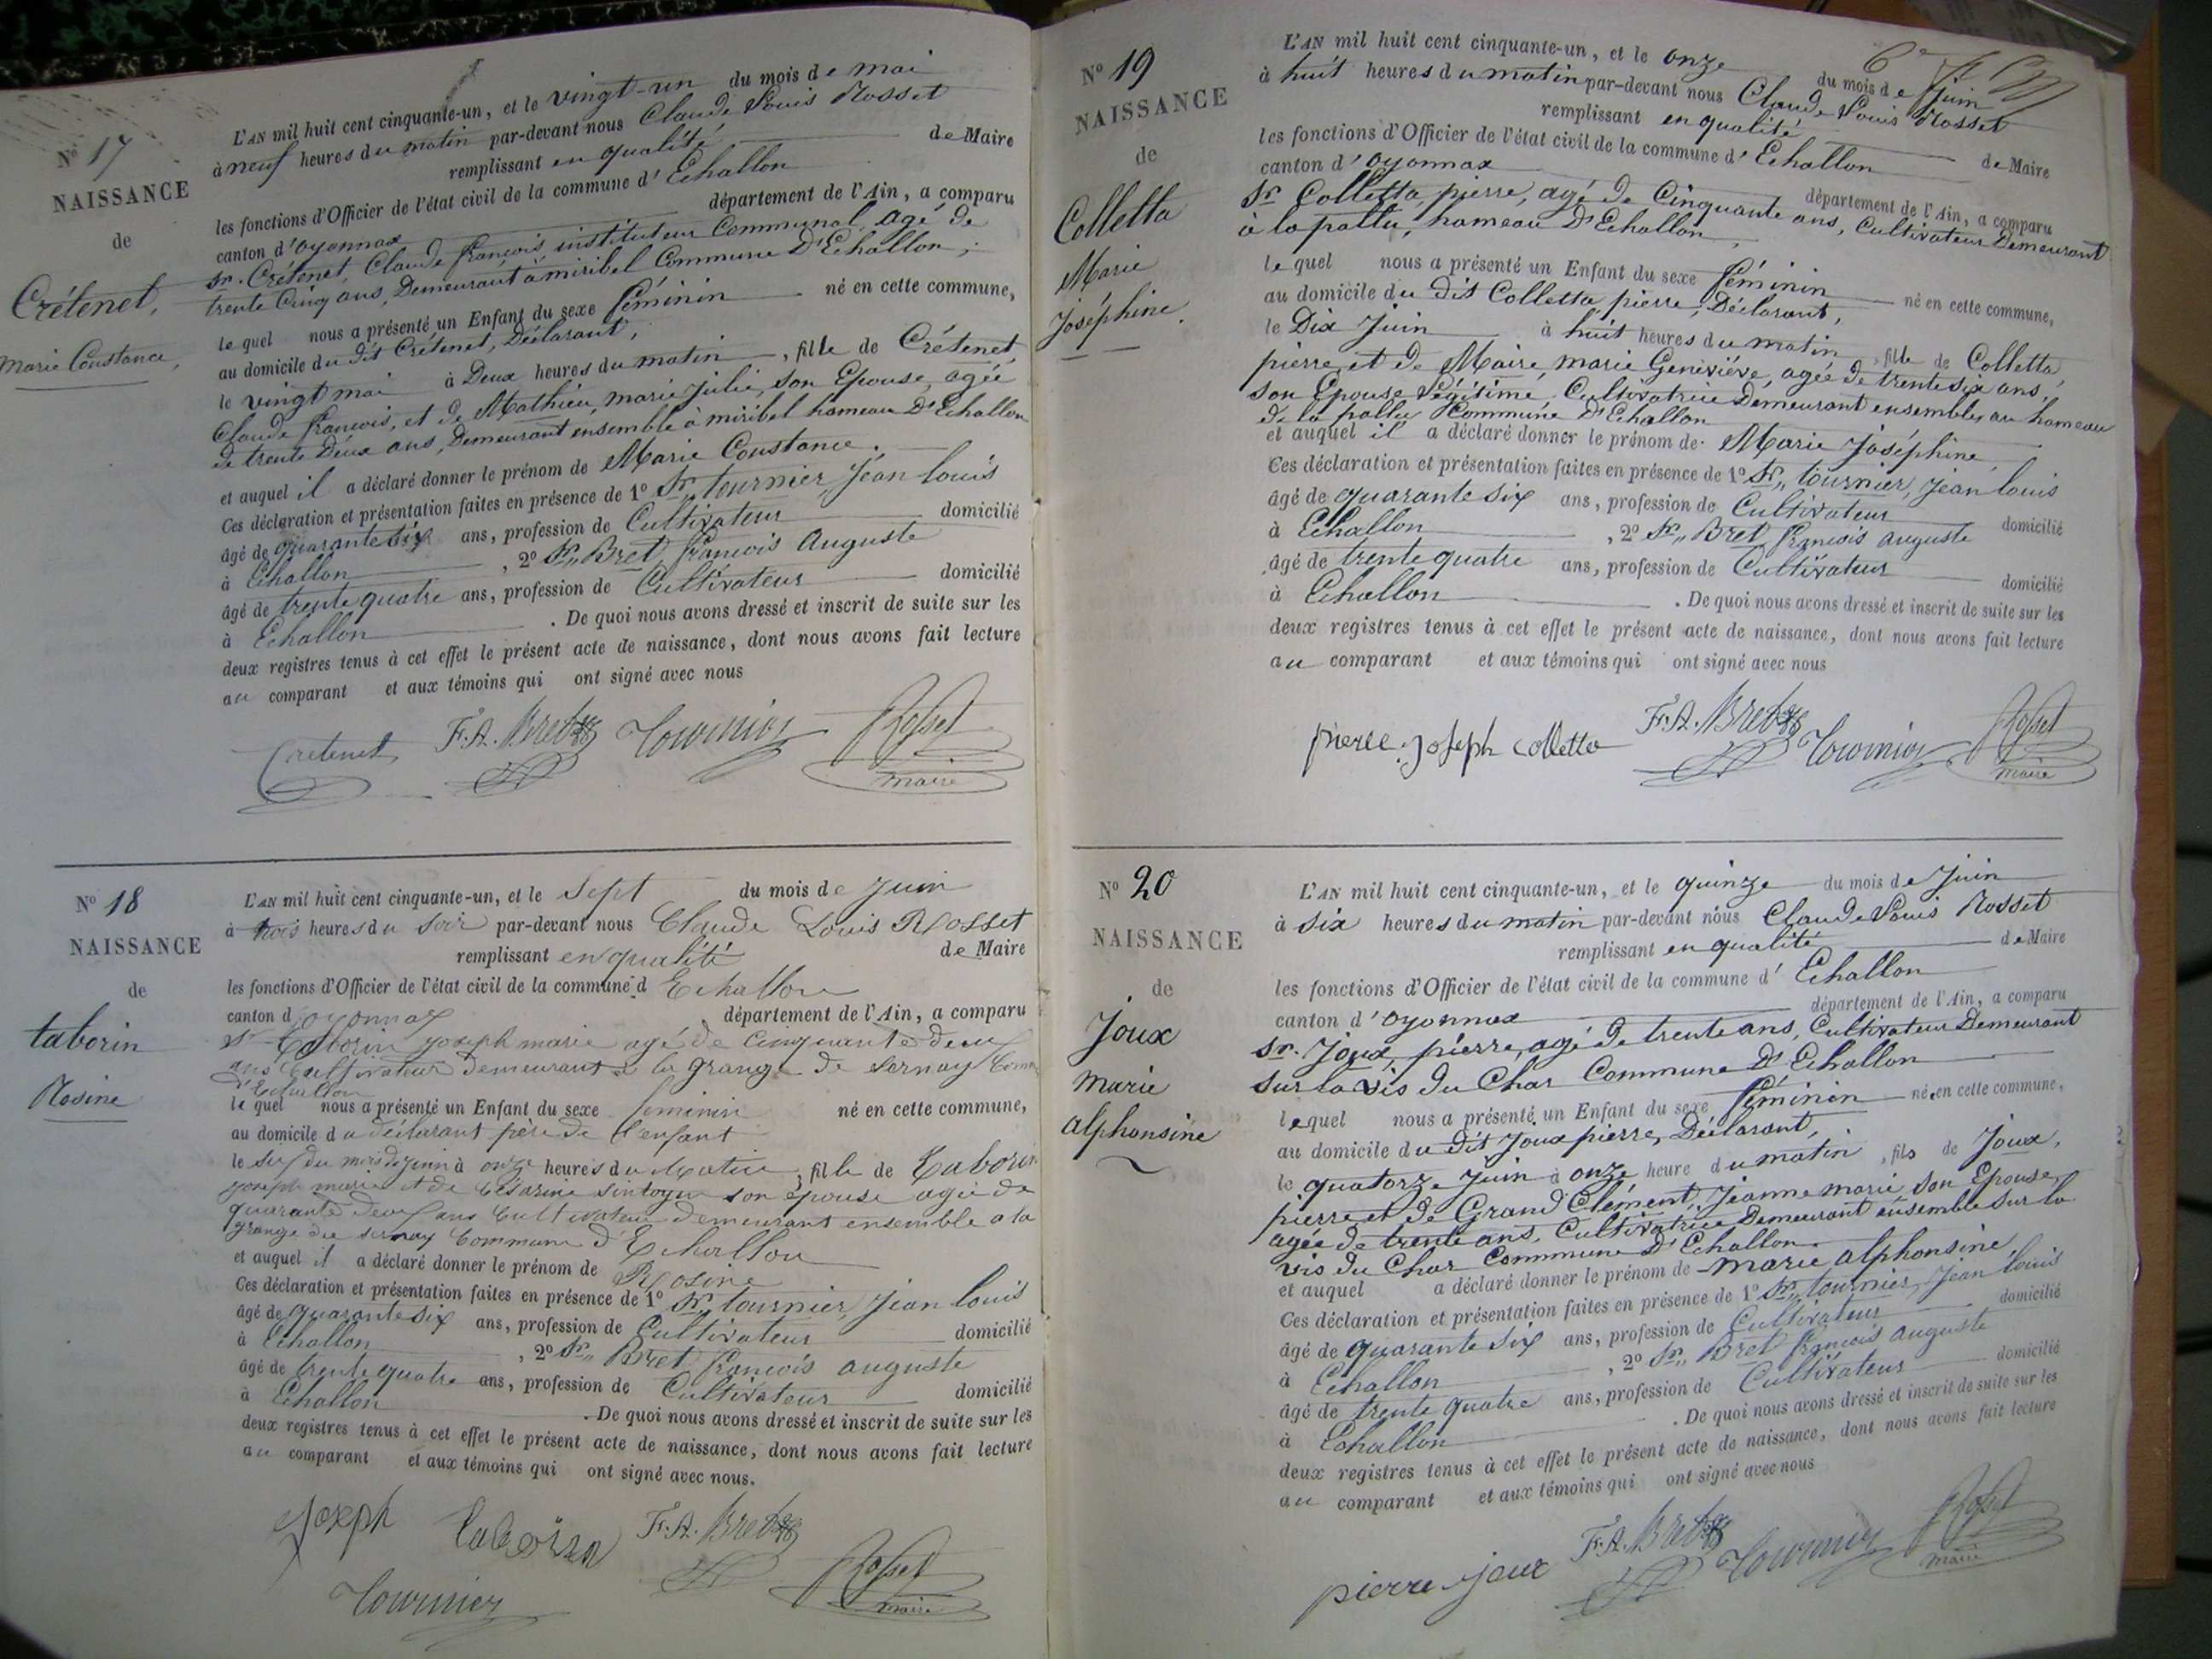 N° 17
NAISSANCE
de
Crétenet,
Marie Constance,
L'AN mil huit cent cinquante-un, et le vingt-un du mois de mai
à neuf heures du matin par-devant nous Claude Louis Rosset
remplissant en qualité de Maire
les fonctions d'Officier de l'état civil de la commune d' Echallon
canton d'oyonnax département de l'Ain, a comparu
sr. Crétenet, Claude françois, instituteur Communal, agé de
trente Cinq ans, Demeurant à miribel Commune D'Echallon,
le quel nous a présenté un Enfant du sexe féminin né en cette commune,
au domicile du dit Crétenet, Déclarant,
le vingt mai à Deux heures du matin, fille de Crétenet,
Claude françois, et de Mathieu, marie julie, son Epouse, agée
de trente Deux ans, Demeurant ensemble à miribel hameau D'Echallon
et auquel il a déclaré donner le prénom de Marie Constance.
Ces déclaration et présentation faites en présence de 1° Sr. tournier, Jean louis
âgé de quarante six ans, profession de Cultivateur domicilié
à Echallon, 2° Sr. Bret, françois Auguste
âgé de trente quatre ans, profession de Cultivateur domicilié
à Echallon. De quoi nous avons dressé et inscrit de suite sur les
deux registres tenus à cet effet le présent acte de naissance, dont nous avons fait lecture
au comparant et aux témoins qui ont signé avec nous
Cretenet F.A. Bret Tournier Rosset
maire
N° 18
NAISSANCE
de
taborin
Rosine
L'AN mil huit cent cinquante-un, et le Sept du mois de Juin
à trois heures du soir par-devant nous Claude Louis Rosset
remplissant en qualité de Maire
les fonctions d'Officier de l'état civil de la commune d Echallon
canton d oyonnax département de l'Ain, a comparu
sr Taborin joseph marie agé de cinquante deux
ans Cultivateur demeurant à la grange de sernay Comm
d'Echallon
le quel nous a présenté un Enfant du sexe feminin né en cette commune,
au domicile du déclarant père de l'enfant
le six du mois de juin à onze heures du Matin, fille de Taborin
joseph marie et de Césarine son épouse agée de
quarante deux ans Cultivateur demeurant ensemble a la
grange du sernay Commune d'Echallon
et auquel il a déclaré donner le prénom de Rosine
Ces déclaration et présentation faites en présence de 1° Sr. tournier, Jean louis
âgé de quarante six ans, profession de Cultivateur domicilié
à Echallon, 2° Sr. Bret, françois auguste
âgé de trente quatre ans, profession de Cultivateur domicilié
à Echallon. De quoi nous avons dressé et inscrit de suite sur les
deux registres tenus à cet effet le présent acte de naissance, dont nous avons fait lecture
au comparant et aux témoins qui ont signé avec nous.
joseph taborin F.A. Bret
Tournier Rosset
maire
N° 19
NAISSANCE
de
Colletta
Marie
Joséphine.
L'AN mil huit cent cinquante-un, et le onze du mois de Juin
à huit heures du matin par-devant nous Claude Louis Rosset
remplissant en qualité de Maire
les fonctions d'Officier de l'état civil de la commune d' Echallon
canton d'oyonnax département de l'Ain, a comparu
Sr Colletta, pierre, agé de Cinquante ans, Cultivateur Demeurant
à la pallu, hameau D'Echallon,
le quel nous a présenté un Enfant du sexe féminin né en cette commune,
au domicile du dit Colletta pierre, Déclarant,
le Dix Juin à huit heures du matin, fille de Colletta,
pierre, et de Maire, marie Geneviève, agée de trente six ans,
son Epouse Légitime, Cultivatrice Demeurant ensemble, au hameau
de la pallu Commune D'Echallon
et auquel il a déclaré donner le prénom de Marie Joséphine
Ces déclaration et présentation faites en présence de 1° Sr. tournier, jean louis
âgé de quarante six ans, profession de Cultivateur domicilié
à Echallon, 2° Sr. Bret, françois auguste
âgé de trente quatre ans, profession de Cultivateur domicilié
à Echallon. De quoi nous avons dressé et inscrit de suite sur les
deux registres tenus à cet effet le présent acte de naissance, dont nous avons fait lecture
au comparant et aux témoins qui ont signé avec nous
pierre joseph colletta F.A. Bret Tournier Rosset
maire
N° 20
NAISSANCE
de
Joux
marie
alphonsine
L'AN mil huit cent cinquante-un, et le quinze du mois de Juin
à six heures du matin par-devant nous Claude Louis Rosset
remplissant en qualité de Maire
les fonctions d'Officier de l'état civil de la commune d' Echallon
canton d'oyonnax département de l'Ain, a comparu
sr. Joux, pierre, agé de trente ans, Cultivateur Demeurant
sur la vis du Char Commune D'Echallon
lequel nous a présenté un Enfant du sexe féminin né en cette commune,
au domicile du dit Joux pierre, Déclarant,
le quatorze juin à onze heure du matin, fils de Joux,
pierre et de Grand Clément, Jeanne marie, son Epouse,
agée de trente ans, Cultivatrice Demeurant ensemble sur la
vis du Char Commune D'Echallon.
et auquel a déclaré donner le prénom de marie alphonsine
Ces déclaration et présentation faites en présence de 1° Sr. tournier, Jean louis
âgé de quarante six ans, profession de Cultivateur domicilié
à Echallon, 2° Sr. Bret françois auguste
âgé de trente quatre ans, profession de Cultivateur domicilié
à Echallon. De quoi nous avons dressé et inscrit de suite sur les
deux registres tenus à cet effet le présent acte de naissance, dont nous avons fait lecture
au comparant et aux témoins qui ont signé avec nous
pierre joux F.A. Bret Tournier Rosset
maire